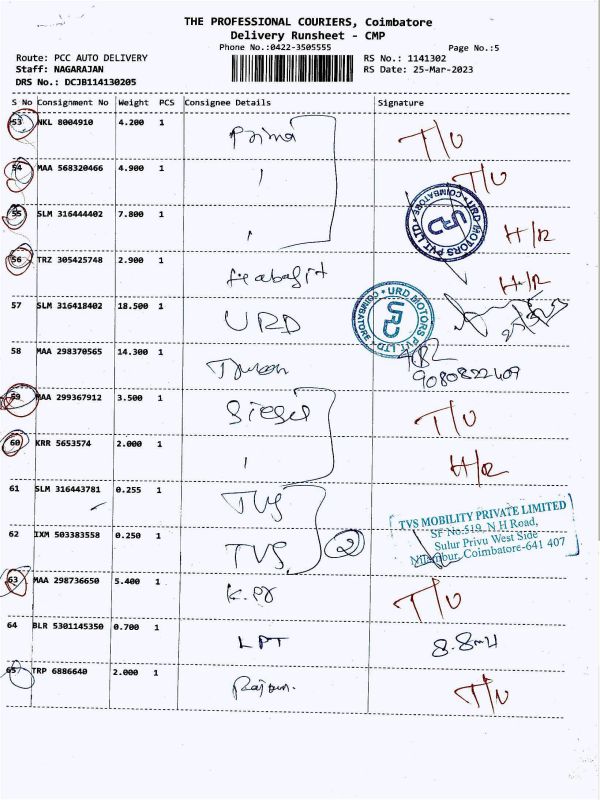 THE PROFESSIONAL COURIERS, Coimbatore
Delivery Runsheet - CMP
Phone No.:0422-3505555 Page No.:5
Route: PCC AUTO DELIVERY RS No.: 1141302
Staff: NAGARAJAN RS Date: 25-Mar-2023
DRS No.: DCJB114130205
S No Consignment No Weight PCS Consignee Details Signature
53 NKL 8004910 4.200 1 Prima T/U
54 MAA 568320466 4.900 1 T/U
COIMBATORE URD MOTORS PVT LTD URD
55 SLM 316444402 7.800 1 H/R
56 TRZ 305425748 2.900 1 H/R
COIMBATORE URD MOTORS PVT LTD
57 SLM 316418402 18.500 1 URD
58 MAA 298370565 14.300 1 9080822409
59 MAA 299367912 3.500 1 T/U
60 KRR 5653574 2.000 1 H/R
61 SLM 316443781 0.255 1 TVS
TVS MOBILITY PRIVATE LIMITED
SF No.519, N H Road,
62 IXM 503383558 0.250 1 TVS 2 Sulur Privu West Side
Coimbatore-641 407
63 MAA 298736650 5.400 1 T/U
64 BLR 5301145350 0.700 1 LPT
65 TRP 6886640 2.000 1 T/U